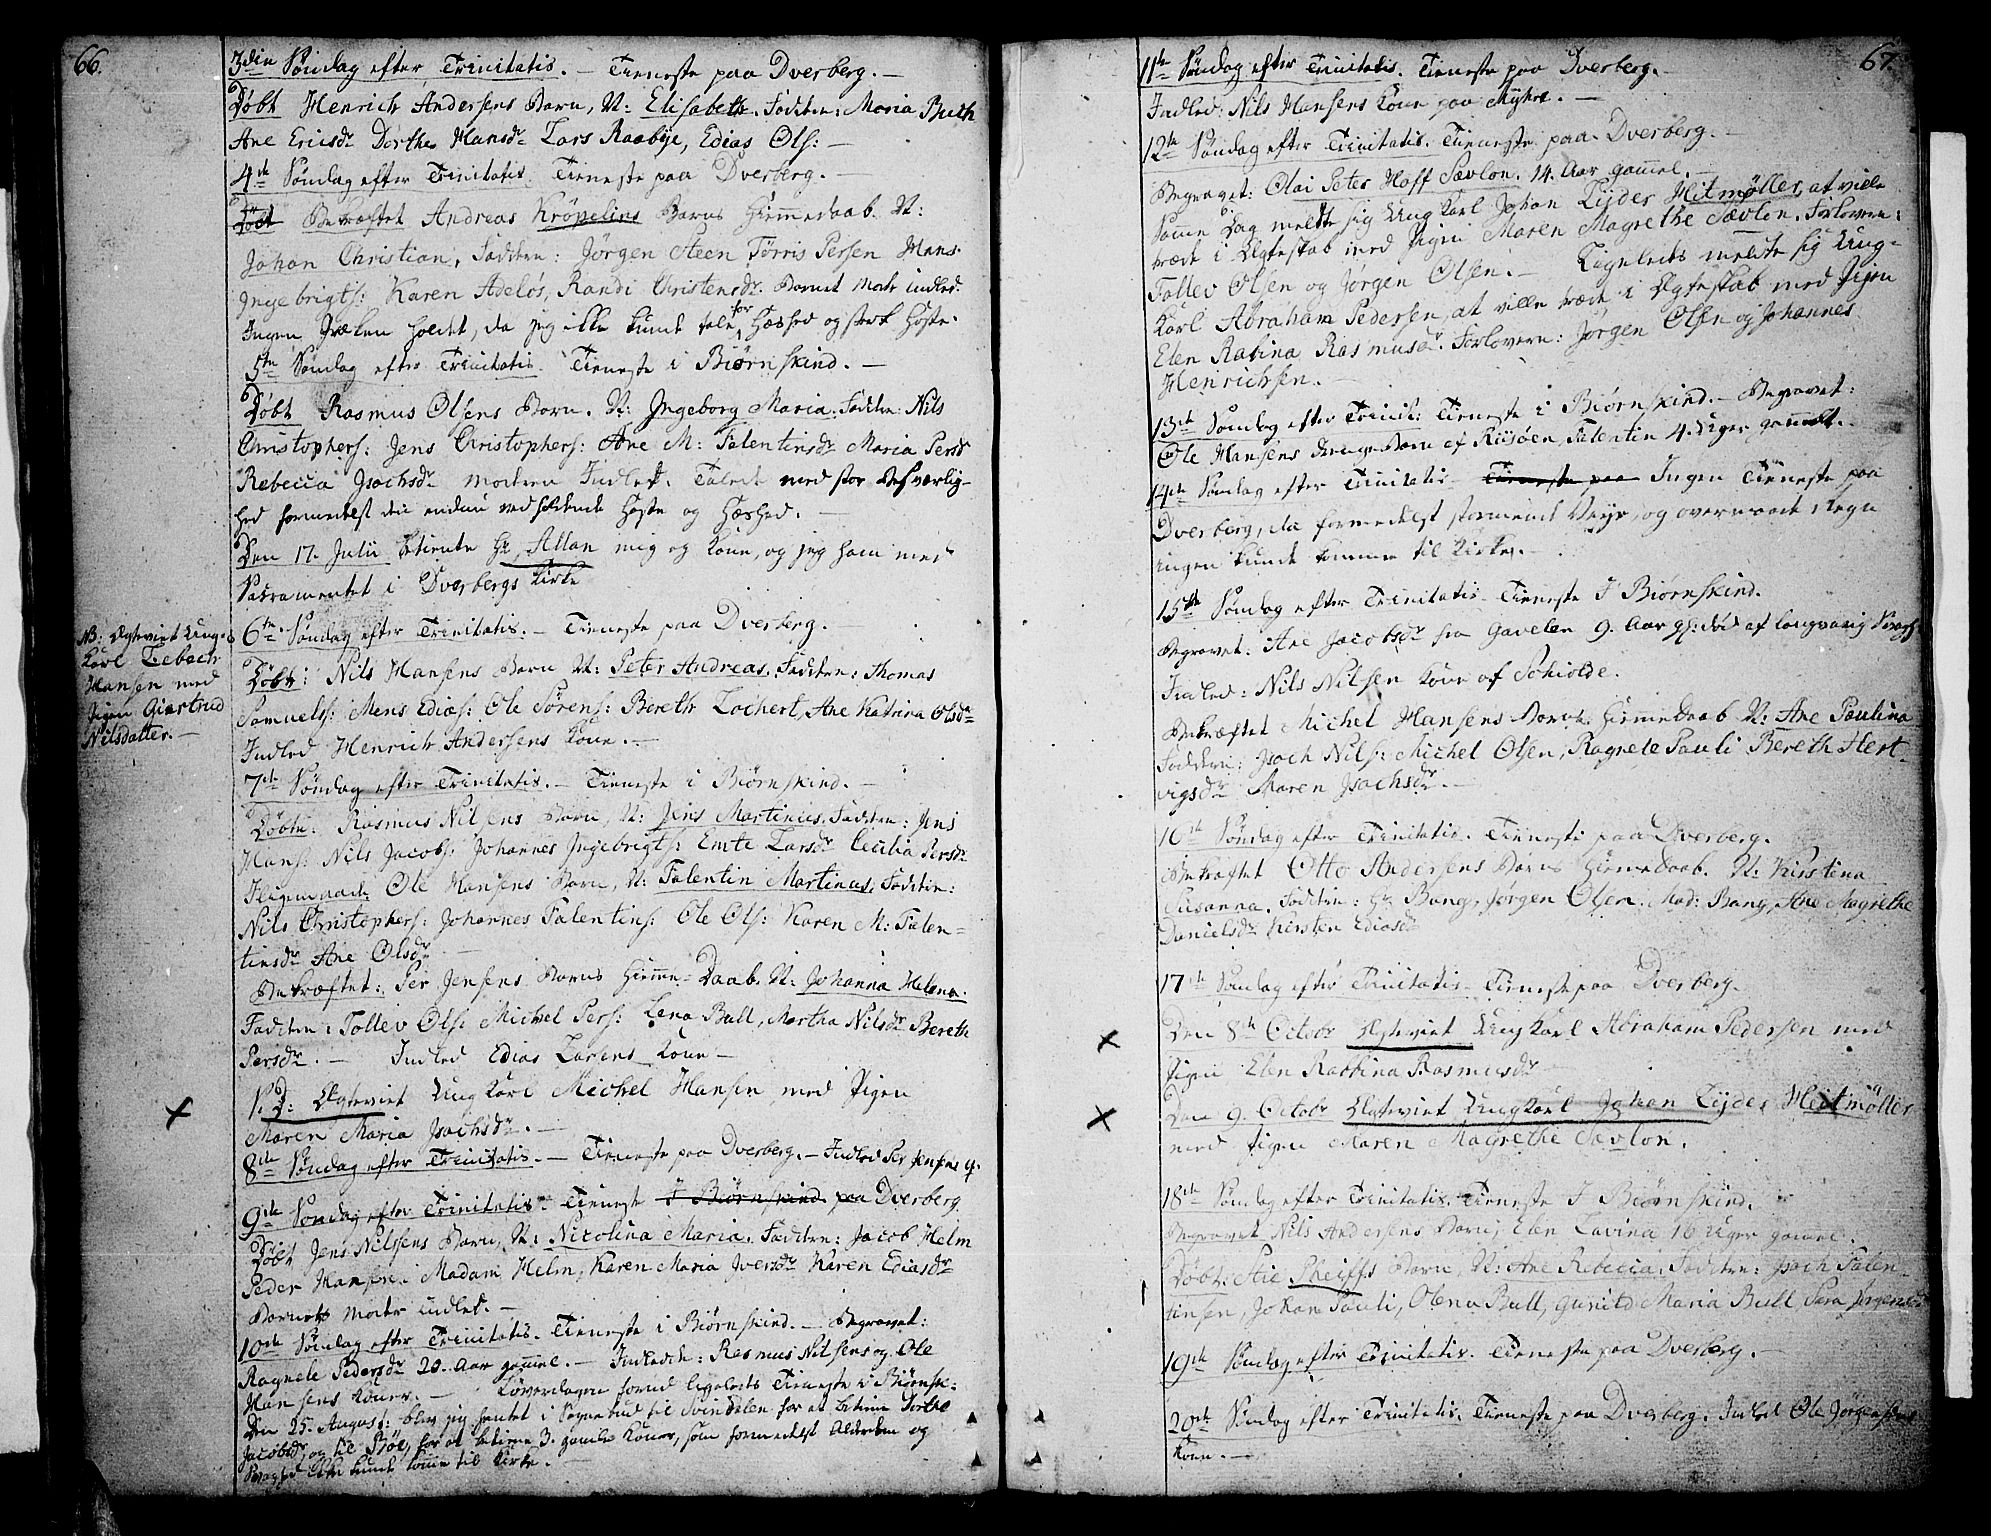 66.
3die Søndag efter Trinitatis. – Tieneste paa Dverberg. –
Døbt Henrich Andersens Barn, N: Elisabeth. Faddere: Maria Buth
Ane Ericsdr Dorthe Hansdr Lars Raabye, Edias Ols: –
4de Søndag efter Trinitatis. Tieneste paa Dverberg. –
Døbt Bekræftet Andreas Kröpelins Barns Hiemmedaab. N:
Johan Christian, Faddere: Jørgen Steen Tørris Persen Hans
Ingebrigts: Karen Adeløs, Randi Christensdr. Barnet Modr indled.
Ingen Præken holdet, da jeg ikke kunde tale for Hæshed og stærk Hoste.
5te Søndag efter Trinitatis. Tieneste i Biørnskind. –
Døbt Rasmus Olsens Barn. N: Ingeborg Maria. Faddere: Nils
Christophers: Jens Christophers: Ane M: Falentinsdr Maria Persdr
Rebecca Isachsdr Modren Indled. Talede med stor Besværlig-
hed formedelst den endnu vedholdende Hoste og Hæshed. –
Den 17. Julii betiente Hr. Allan mig og Kone, og jeg ham med
Sacramentet i Dverbergs Kirke
6te Søndag efter Trinitatis. – Tieneste paa Dverberg. –
NB: Ægteviet Ung-
Karl Zebach
Hansen med
Pigen Giertrud
Nilsdatter. –
Døbt: Nils Hansens Barn N: Peter Andreas. Faddere: Thomas
Samuels: Mens Edias: Ole Sörens: Bereth Lochert, Ane Katrina Olsdr
Indled Henrich Andersens Kone. –
7de Søndag efter Trinitatis. – Tieneste i Biørnskind. –
Døbte: Rasmus Nilsens Barn, N: Jens Martinus. Faddere: Jens
Hans: Nils Jacobs: Johannes Ingebrigts: Emte Larsdr Cecilia Persdr
Iligemaade Ole Hansens Barn, N: Falentin Martinus. Faddere:
Nils Christophers: Johannes Falentins: Ole Ols: Karen M: Falen-
tinsdr Ane Olsdr –
Bekræftet: Per Jensens Barns Hiemme-Daab. N: Johanna Helena.
Faddere: Tollev Ols: Michel Pers: Lena Bull, Martha Nilsdr Bereth
Persdr. – Indled Edias Larsens Kone –
S. D: Ægteviet Ung Karl Michel Hansen med Pigen
Maren Maria Isachsdr. –
8de Søndag efter Trinitatis. – Tieneste paa Dverberg. – Indled Per Jensens q.
9de Søndag efter Trinitatis. Tieneste I Biørnskind paa Dverberg
Døbt Jens Nilsens Barn, N: Nicolina Maria. Faddere: Jacob Helm
Peder Hansen. Madam Helm, Karen Maria Iversdr Karen Ediasdr
Barnets Modr indled. –
10de Søndag efter Trinitatis. Tieneste i Biørnskind. – Begravet:
Ragnele Pedersdr 20. Aar gammel. – Indledde: Rasmus Nilsens og Ole
Hansens Koner. – Løverdagen forud ligeledes Tieneste i Biørnsk:
Den 25. August: blev jeg hentet i Sognebud til Svindalen for at betiene Dorthe
Jacobsdr og til Böe, for at betiene 3. gamle Koner, som formedelst Alderdom og
Svaghed ikke kunde komme til Kirke. –
67.
11te Søndag efter Trinitatis. Tieneste paa Dverberg. –
Indled: Nils Hansens Kone paa Myhre. –
12te Søndag efter Trinitatis. Tieneste paa Dverberg. –
Begravet: Olai Peter Hoff Sævlon. 14. Aar gammel. –
Samme Dag meldte sig Ung Karl Johan Tijdes Heitmøller, at ville
træde i Ægteskab med Pigen Maren Magrethe Sævlon. Forlovere:
Tollev Olsen og Jørgen Olsen. – Ligeledes meldte sig Ung-
Karl Abraham Pedersen, at ville træde i Ægteskab med Pigen
Elen Rabina Rasmusdr. Forlovere: Jørgen Olsen og Johannes
Henrichsen. –
13de Søndag efter Trinit: Tieneste i Biørnskind. – Begravet:
Ole Hansens Drenge Barn af Riisöen, Falentin 4. Uger gammelt. –
14de Søndag efter Trinitatis Tieneste paa Ingen Tieneste paa
Dverberg, da formedelst stormende Veyr, og overmaade Regn
ingen kunde komme til Kirke. –
15de Søndag efter Trinitatis. Tieneste I Biørnskind.
Begravet: Ane Jacobsdr fra Gavelen 9. Aar gl: död af langvarig Svagh:
Indled: Nils Nilsen Kone af Schiolde.
Bekræftet Michel Hansens Barns Hiemmedaab N: Ane Paulina
Faddere: Isach Nils: Michel Olsen, Ragnele Pauli Bereth Hert-
vigsdr Maren Isachsdr. –
16de Søndag efter Trinitatis. Tieneste paa Dverberg.
Bekræftet Otto Andersens Barns Hiemmedaab. N: Kirstena
Susanna. Faddere: Hr Bang, Jørgen Olsen. Mad: Bang, Ane Magrethe
Danielsdr Kirsten Ediasdr
17de Søndag efter Trinitatis – Tieneste paa Dverberg.
Den 8de Octobr Ægteviet Ung Karl Abraham Pedersen med
Pigen Elen Rabbina Rasmusdr
Den 9. Octobr Ægteviet Ung Karl Johan Tijdes Heitmöller
med Pigen Maren Magrethe Sævlon.
18de Søndag efter Trinitatis. Tieneste I Biørnskind.
Begravet Nils Andersens Barn, Elen Lavina 16 Uger gammel.
Døbt: Aie Pheiffs Barn, N: Ane Rebecca. Faddere: Isach Falen-
tinsen, Johan Pauli, Olena Bull, Gunild Maria Bull, Sara Jørgensdr
19de Søndag efter Trinitatis. Tieneste paa Dverberg. –
20de Søndag efter Trinitatis. Tieneste paa Dverberg. Indled Ole Jørgensens
Kone. –